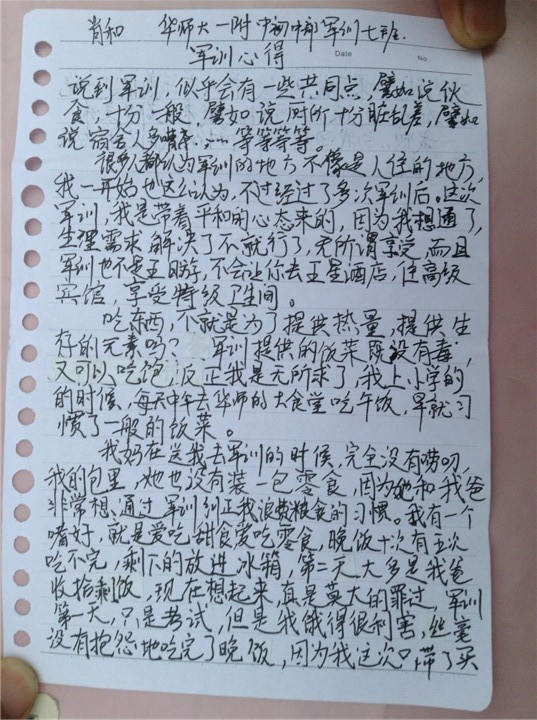 肖和 华师大一附中初中部军训七班.
军训心得
Date No
说到军训,似乎会有一些共同点,譬如说伙
食,十分一般,譬如说厕所十分脏乱差,譬如
说宿舍人多嘈杂……等等等等。
很多人都认为军训的地方不像是人住的地方,
我一开始也这么认为,不过经过了多次军训后。这次
军训,我是带着平和的心态来的,因为我想通了,
生理需求解决了不就行了,无所谓享受,而且
军训也不是王日游,不会让你去王星酒店,住高级
宾馆,享受特级卫生间。
吃东西,不就是为了提供热量,提供生
存的元素吗?军训提供的饭菜既没有毒,
又可以吃饱,反正我是无所求了,我上小学的
的时候,每天中午去华师的大食堂吃午饭,早就习
惯了一般的饭菜。
我妈在送我去军训的时候,完全没有唠叨,
我的包里,她也没有装一包零食,因为她和我爸
非常想通过军训纠正我浪费粮食的习惯。我有一个
嗜好,就是爱吃甜食爱吃零食,晚饭十次有五次
吃不完,剩下的放进冰箱,第二天大多是我爸
收拾剩饭,现在想起来,真是莫大的罪过,军训
第一天,只是考试,但是我饿得很利害,丝毫
没有抱怨地吃完了晚饭,因为我这次只带了买